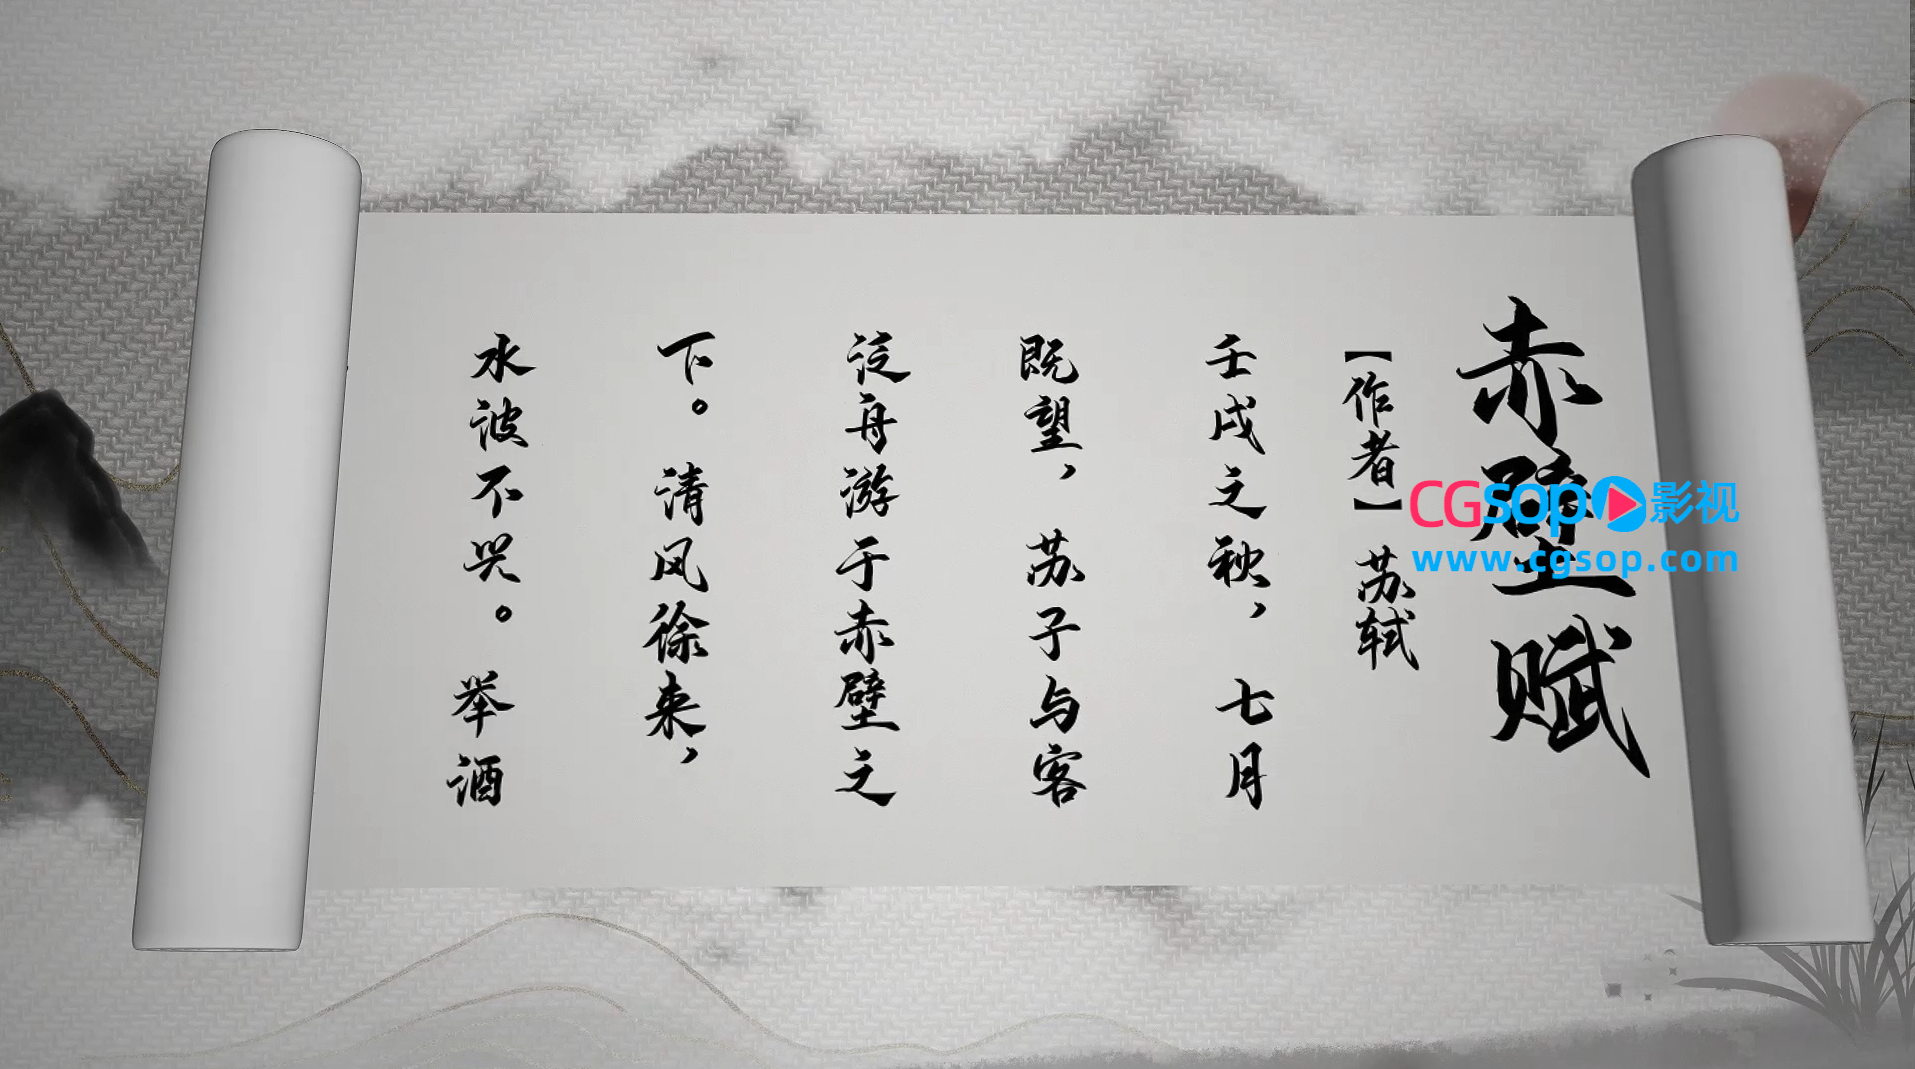 赤壁赋
【作者】苏轼
壬戌之秋，七月
既望，苏子与客
泛舟游于赤壁之
下。清风徐来，
水波不兴。举酒
CGsop影视
www.cgsop.com